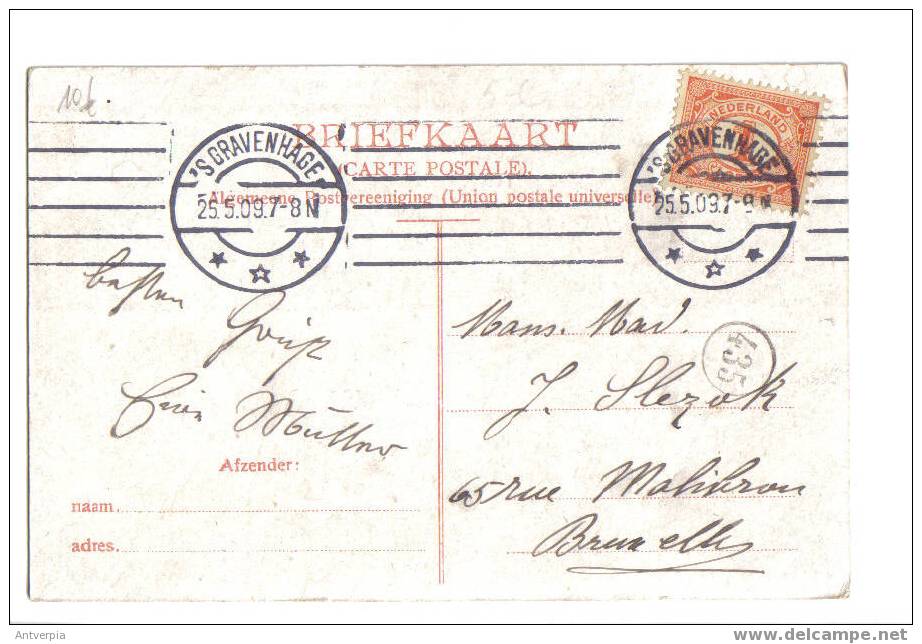 10k
BRIEFKAART
(CARTE POSTALE).
Algemeene Postvereeniging (Union postale universelle)
'S GRAVENHAGE
25.5.09.7-8N
NEDERLAND
'S GRAVENHAGE
25.5.09.7-8N
besten
Gruß
Müller
Afzender:
naam.
adres.
Mons. Mad.
J. Slezak
65 rue Malibran
Bruxelles
435
Antverpia
www.delcampe.net